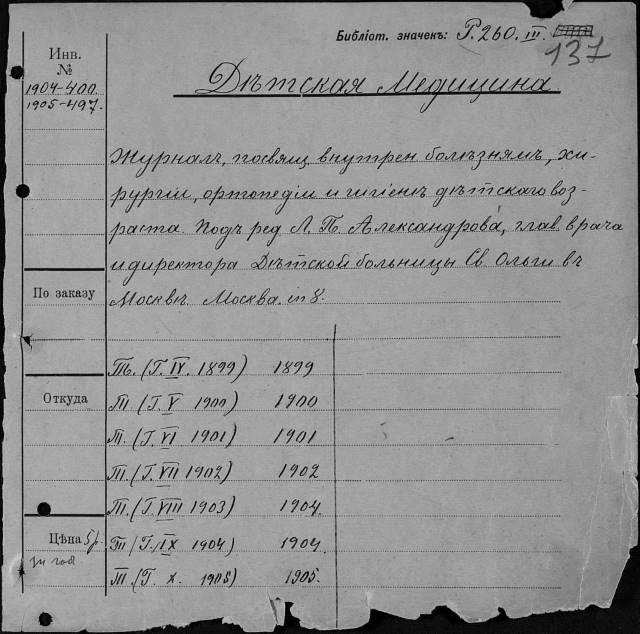 Библіот. значекъ: Р. 260. III.
137
Инв.
№
1904-400.
1905-497.
Дѣтская Медицина
Журналъ, посвящ внутрен болѣзнямъ, хи-
рургіи, ортопедіи и гигіенѣ дѣтскаго воз-
раста. Подъ ред Л. П. Александрова, глав. врача
и директора Дѣтской больницы Св. Ольги въ
Москвѣ. Москва. in 8.
По заказу
Т. (Г. IV. 1899) 1899
Откуда
Т. (Г. V 1900) 1900
Т. (Г. VI 1901) 1901
Т. (Г. VII 1902) 1902
Т. (Г. VIII 1903) 1904.
Цѣна 5 р.
за год
Т (Г. IX 1904) 1904.
Т. (Г. X. 1905) 1905.